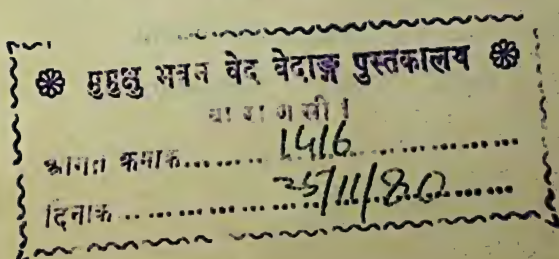 ❀ मुमुक्षु भवन वेद वेदाङ्ग पुस्तकालय ❀
वाराणसी ।
आगत क्रमाक...... 1416......
दिनाक............ 25/11/80......